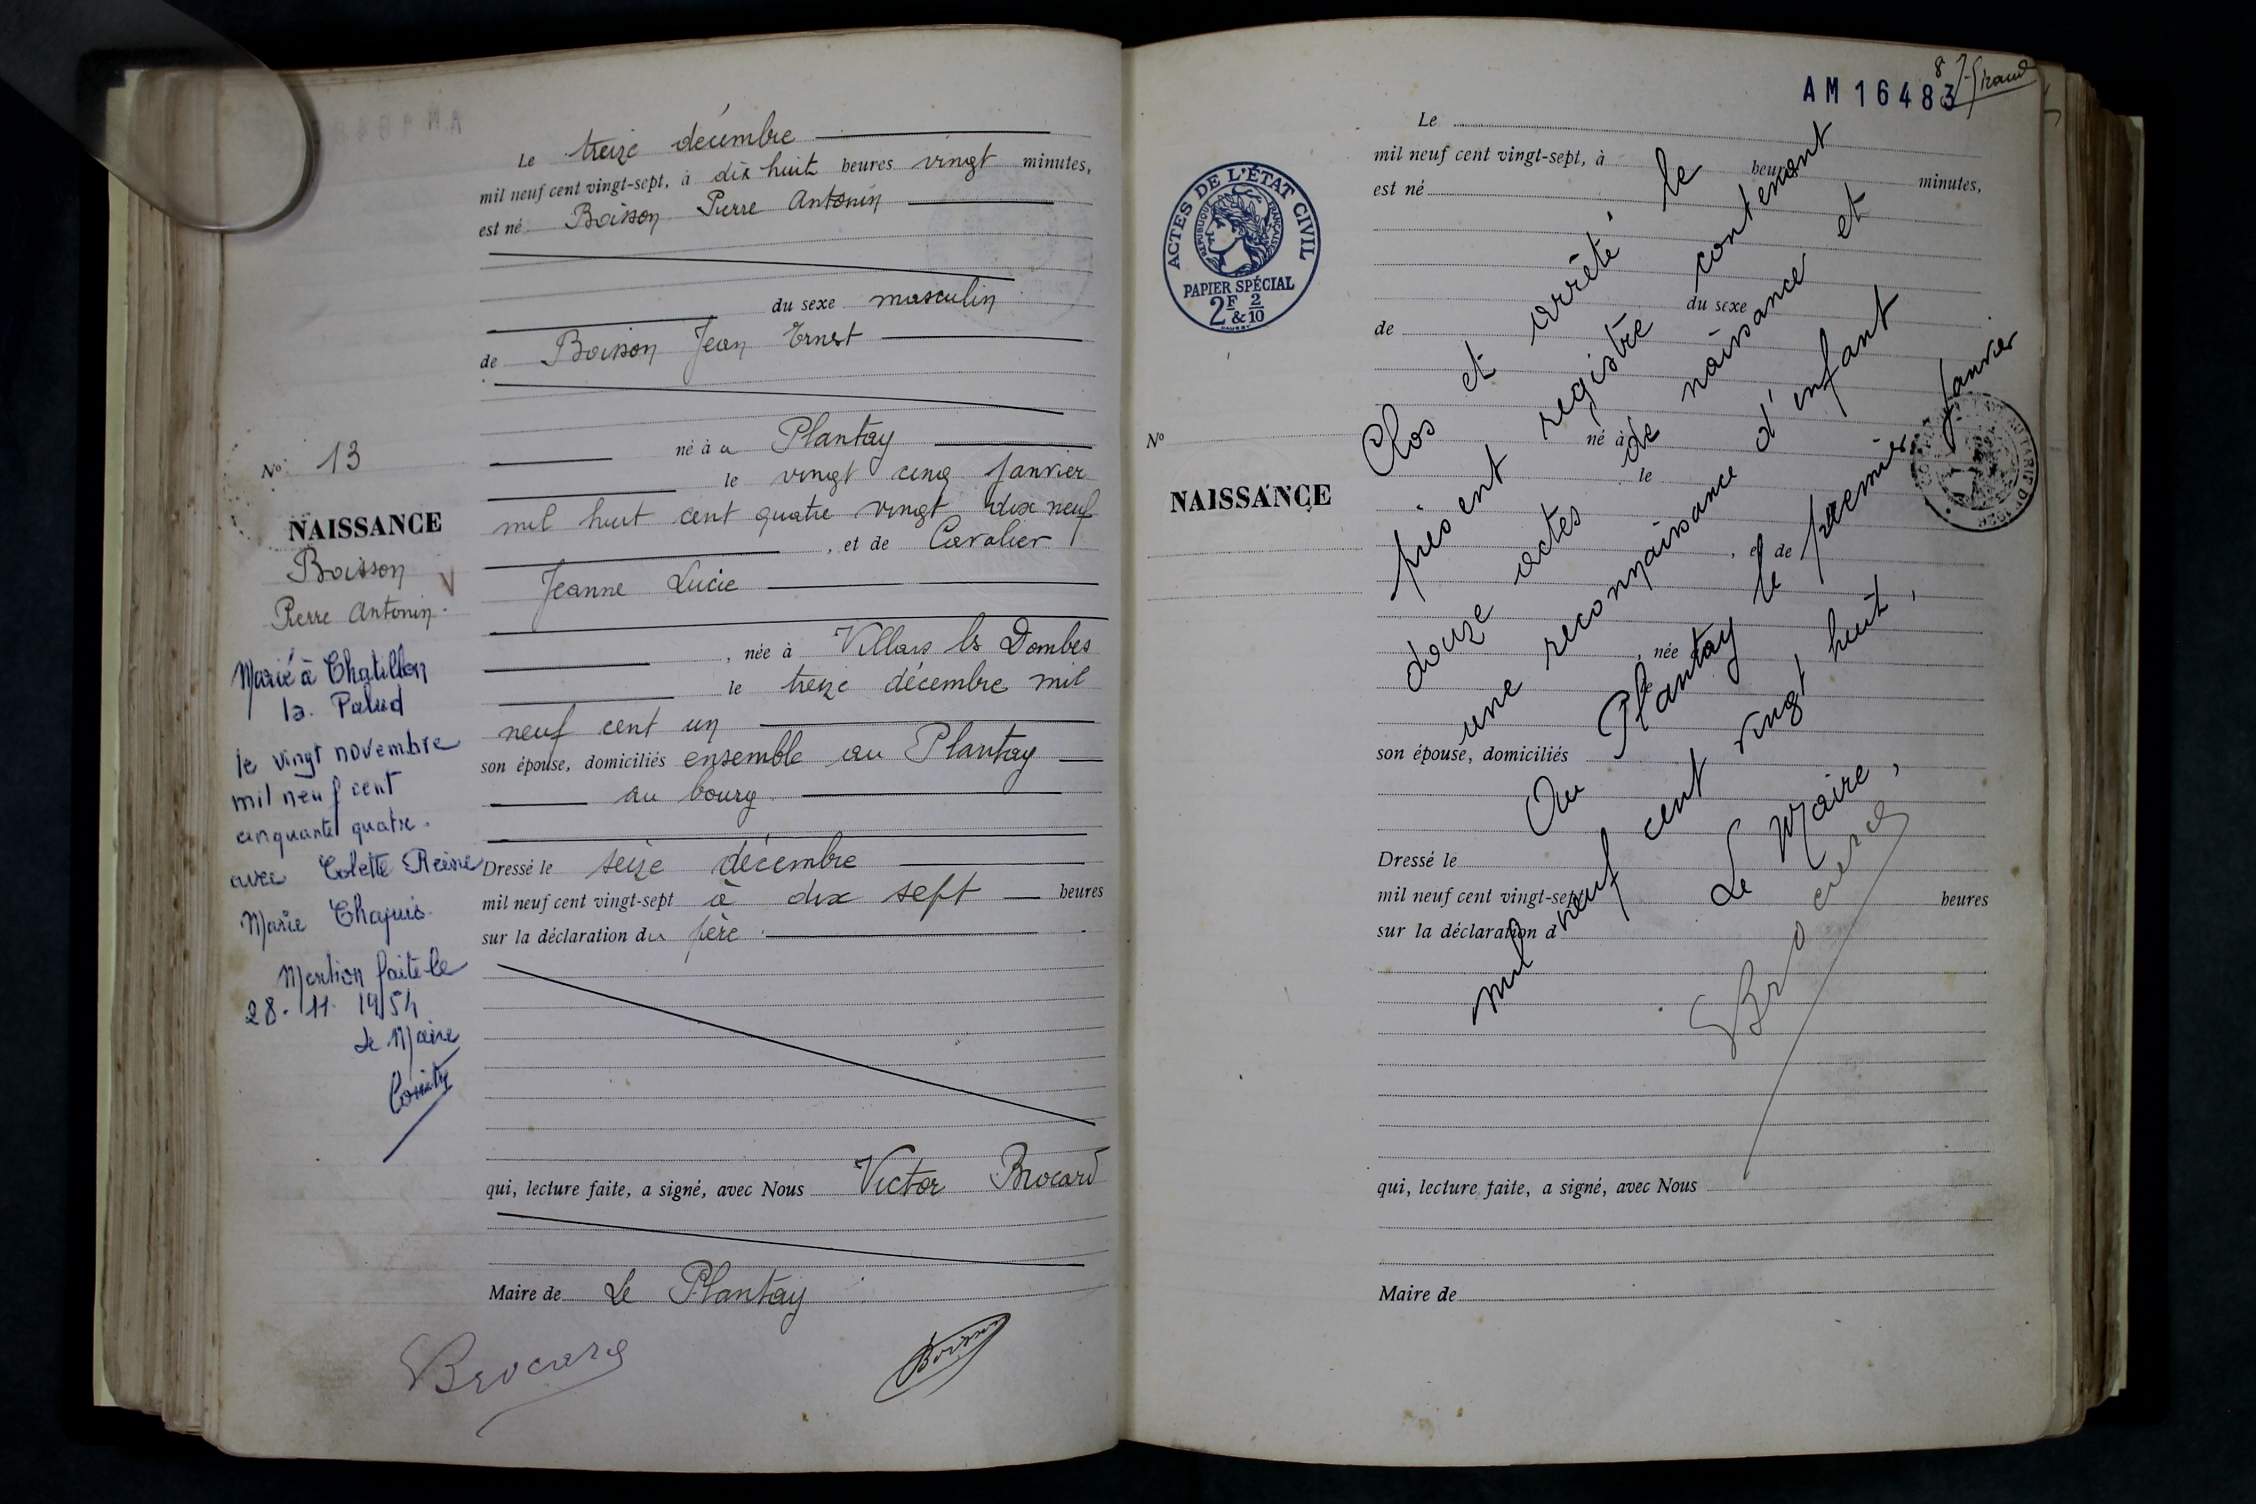 Le treize décembre
mil neuf cent vingt-sept, à dix huit heures vingt minutes,
est né Boisson Pierre Antonin
du sexe masculin
de Boisson Jean Ernest
né à au Plantay
le vingt cinq Janvier
mil huit cent quatre vingt dix neuf
, et de Cavalier
Jeanne Lucie
, née à Villars les Dombes
le treize décembre mil
neuf cent un
son épouse, domiciliés ensemble au Plantay
au bourg
Dressé le seize décembre
mil neuf cent vingt-sept à dix sept heures
sur la déclaration du père
qui, lecture faite, a signé, avec Nous Victor Brocard
Maire de Le Plantay
Brocard
Boisson
No 13
NAISSANCE
Boisson
Pierre Antonin.
Marié à Chatillon
la Palud
le vingt novembre
mil neuf cent
cinquante quatre.
avec Colette Reine
Marie Chapuis
Mention faite le
28. 11. 1954
Le Maire
AM 16483
8
ACTES DE L'ÉTAT CIVIL
RÉPUBLIQUE FRANÇAISE
PAPIER SPÉCIAL
2F & 2/10
No
NAISSANCE
Le
mil neuf cent vingt-sept, à heures minutes,
est né
du sexe
de
né à
le
, et de
, née à
le
son épouse, domiciliés
Dressé le
mil neuf cent vingt-sept heures
sur la déclaration d
qui, lecture faite, a signé, avec Nous
Maire de
Clos et arrêté le
présent registre contenant
douze actes de naissance et
une reconnaissance d'enfant
Au Plantay le premier Janvier
mil neuf cent vingt huit,
Le Maire,
Brocard